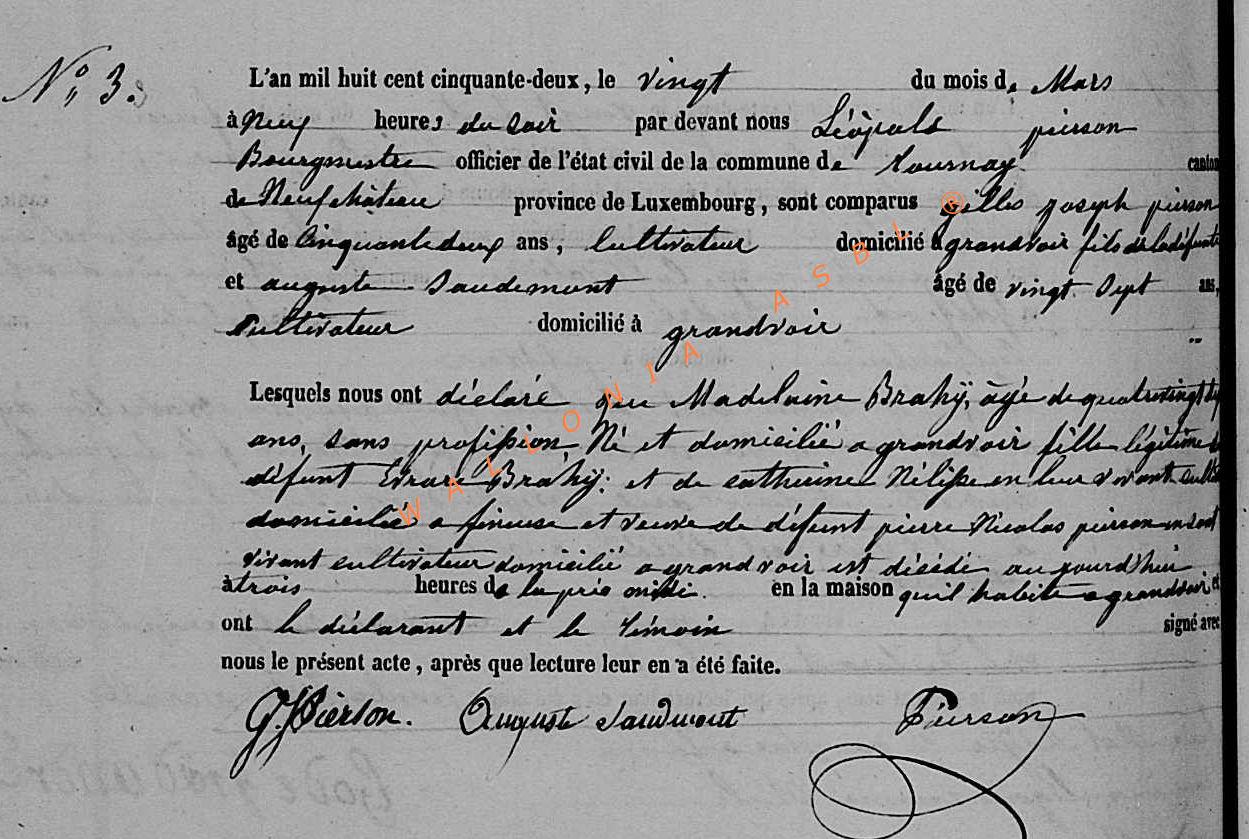 N° 3.
L'an mil huit cent cinquante-deux, le vingt du mois de Mars
à Neuf heures du soir par devant nous Léopold pierson
Bourgmestre officier de l'état civil de la commune de tournay canton
de Neufchâteau province de Luxembourg, sont comparus gilles joseph pierson
âgé de Cinquante deux ans, Cultivateur domicilié a grandvoir fils de la défunte
et auguste Saudmont âgé de vingt Sept ans,
Cultivateur domicilié à grandvoir
Lesquels nous ont déclaré que Madelaine Brahÿ, âgé de quatrevingt
ans, sans profession, Né et domicilié a grandvoir fille légitime
défunt Evrare Brahÿ: et de catherine Nélisse en leur vivant
domicilié a et veuve de défunt pierre Nicolas pierson en son
vivant cultivateur domicilié a grandvoir est décédé aujourd'hui
à trois heures de laprés midi. en la maison quil habite a grandvoir et
ont le déclarant et le témoin signé avec
nous le présent acte, après que lecture leur en a été faite.
G. J. Pierson. Auguste Saudmont Pierson
WALLONIA ASBL ®